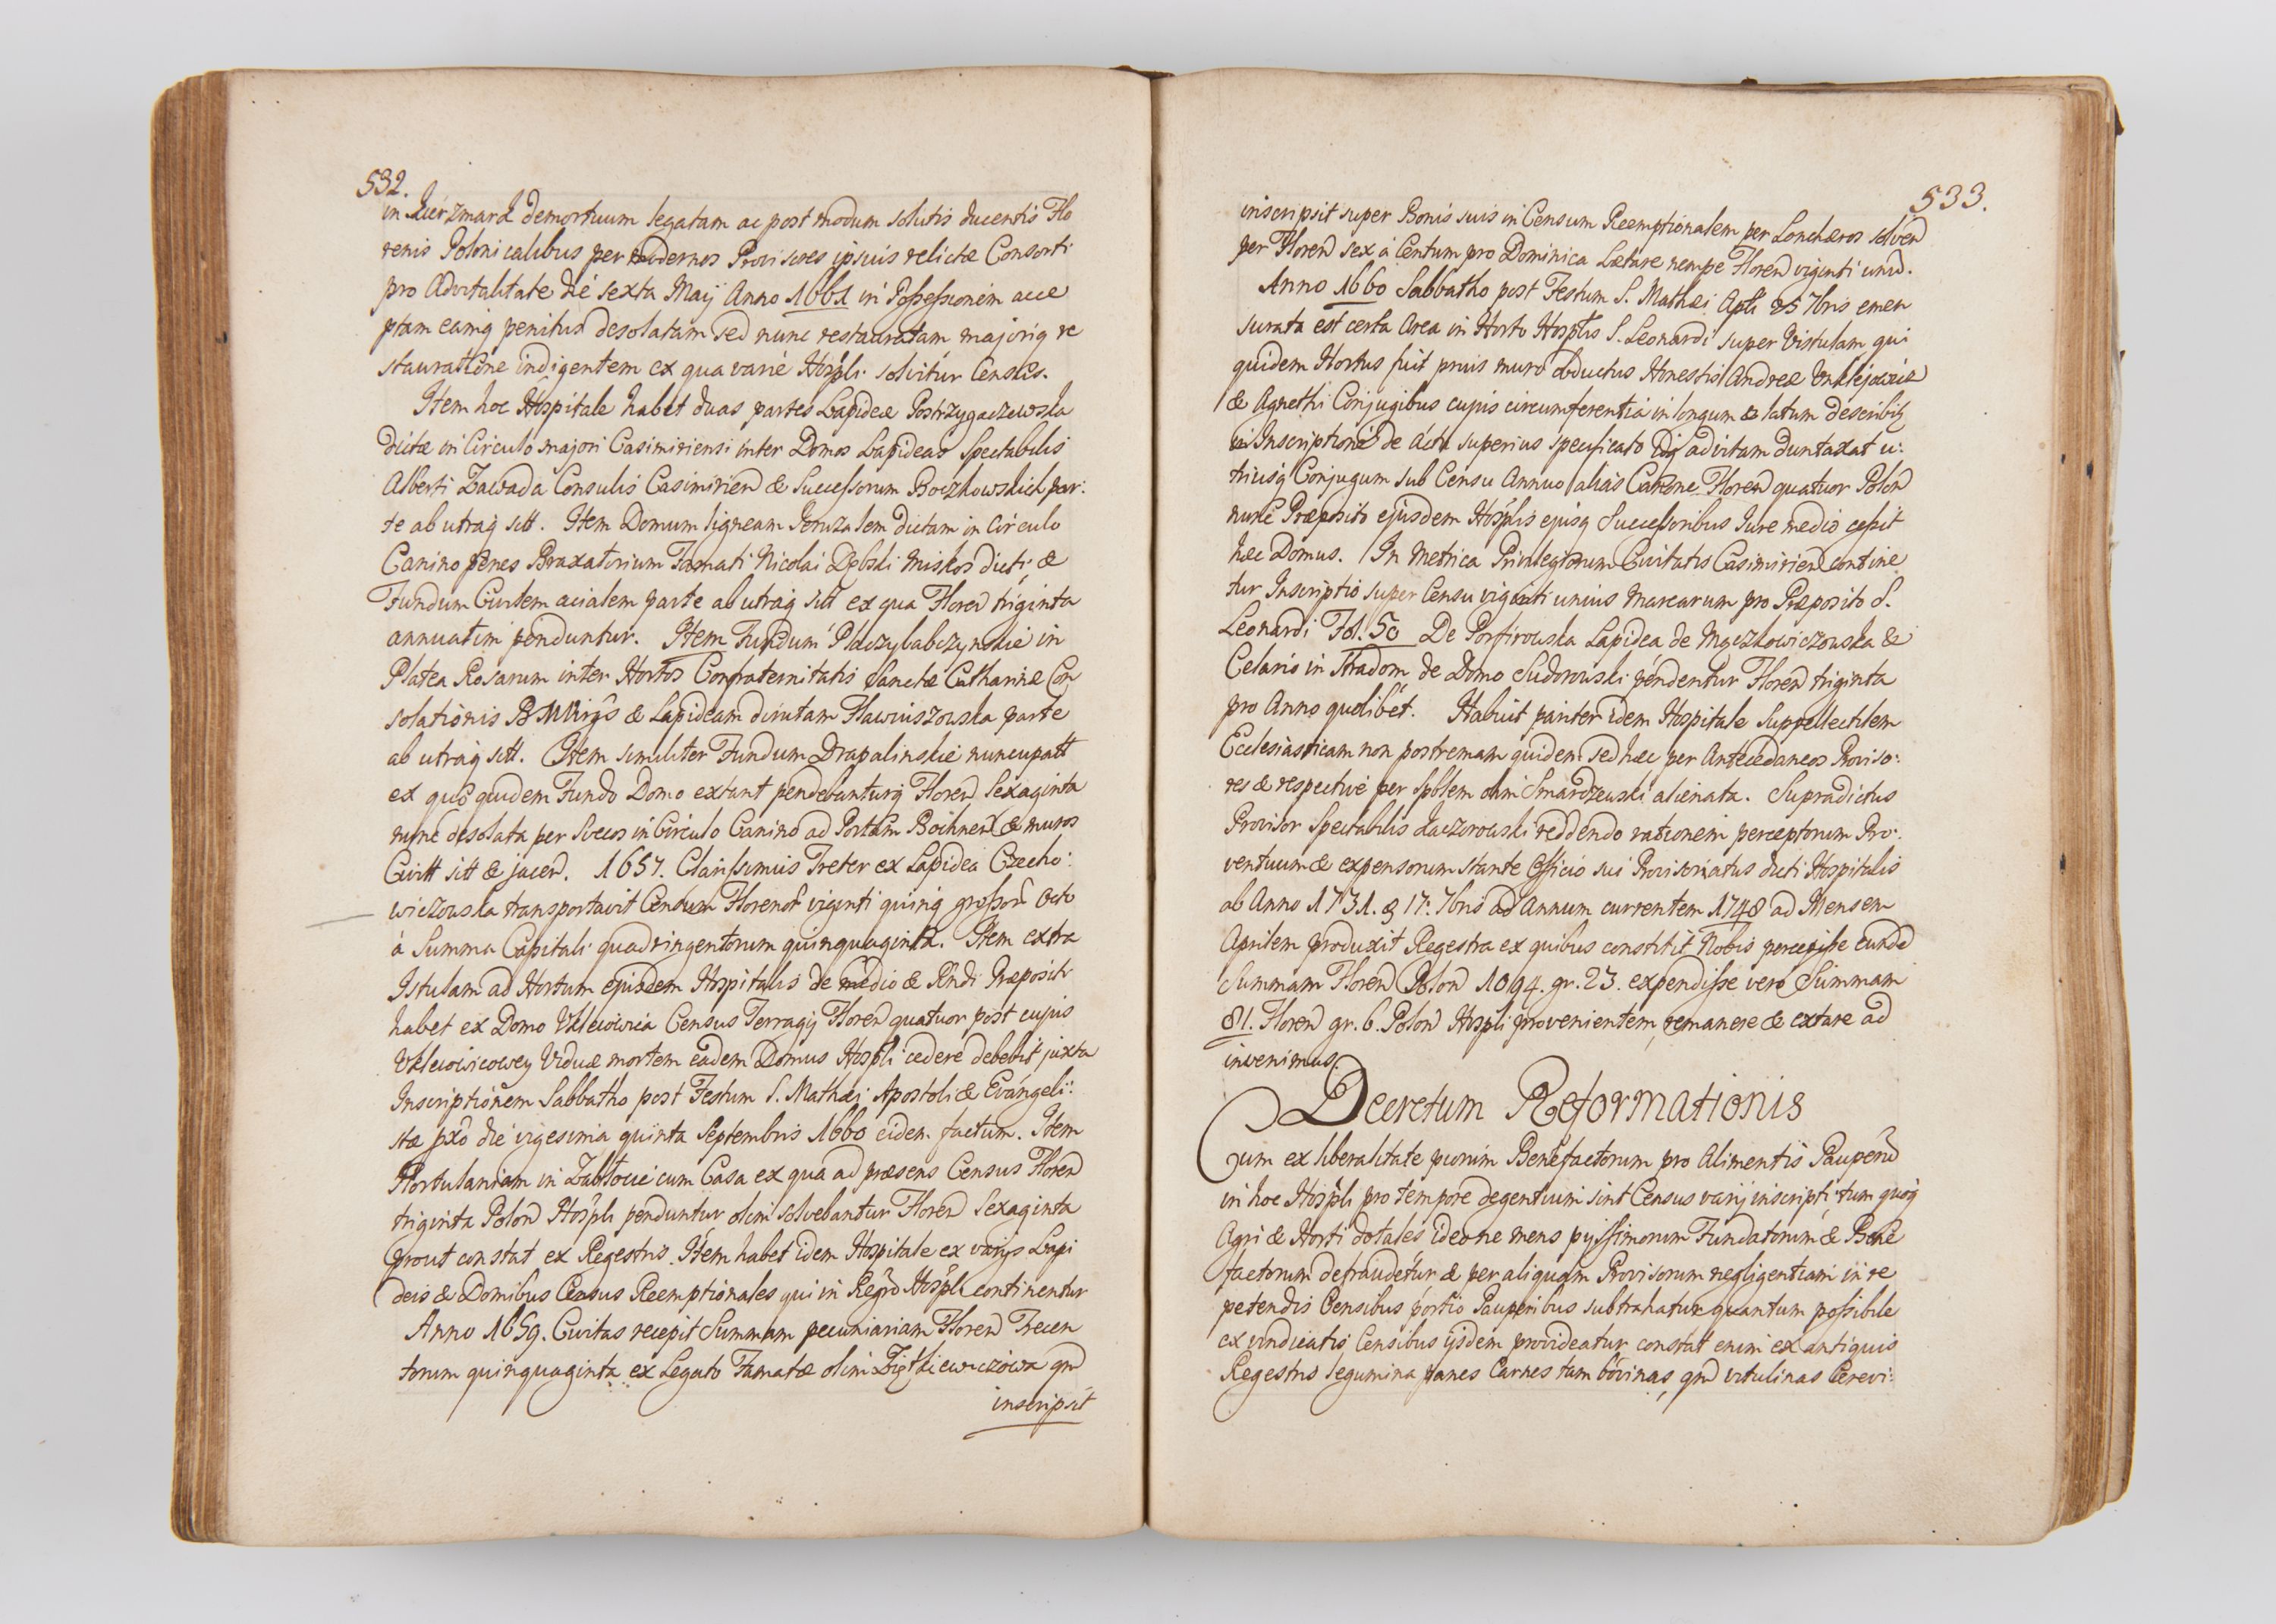 532.
in demortuum legatam ac post modum solutis ducentis Flo
renis Polonicalibus per modernos Provisores ipsius relictæ Consorti
pro Advitalitate die sexta Maij Anno 1661 in Possessionem acce
ptam eamq penitus desolatam sed nunc restauratam majoriq re
stauratione indigentem ex qua varie Hospli solvitur Census.
Item hoc Hospitale habet duas partes Lapideæ Postrzygaczewska
dictæ in Circulo majori Casimiriensi inter Domos Lapideas Spectabilis
Alberti Zawada Consulis Casimirien & Successorum Boczkowskich par:
te ab utraq sitt. Item Domum ligneam Jeruzalem dictam in Circulo
Canino penes Braxatorium Famati Nicolai Dębski Miskos dicti, &
Fundum Eundem acialem parte ab utraq sitt ex qua Floren triginta
annuatim penduntur. Item Fundum Placzybabczynskie in
Platea Rosarum inter Hortos Confraternitatis Sanctæ Catharinæ Con
solationis B M Virgs & Lapideam dirutam Flawiuszowska parte
ab utraq sitt. Item similiter Fundum Drapalinskie nuncupatt
ex quo quidem Fundo Domo extant pendebanturq Floren Sexaginta
nunc desolata per Svecos in Circulo Canino ad Portam Bochnen & muros
Civitt sitt & jacen. 1657. Clarissimus Treter ex Lapidea Czecho:
wiczowska transportavit Censum Florenor viginti quinq grossor Octo
à Summa Capitali quadringentorum quinquaginta. Item extra
Istulam ad Hortum ejusdem Hospitalis de medio & Rndi Præpositi
habet ex Domo Uklejowica Census Terragij Floren quatuor post cujus
Uklejowicowey Viduæ mortem eadem Domus Hospli cedere debebit juxta
Inscriptionem Sabbatho post Festum S. Mathæi Apostoli & Evangeli:
stæ pxo die vigesima quinta Septembris 1660 eiden. factum. Item
Hortulaniam in Zabłocie cum Casa ex qua ad præsens Census Floren
triginta Polon Hospli penduntur olim solvebantur Floren Sexaginta
prout constat ex Regestris. Item habet idem Hospitale ex varijs Lapi
deis & Domibus Census Reemptionales qui in Regro Hospli continentur
Anno 1659. Civitas recepit Summam pecuniariam Floren Trecen
torum quinquaginta ex Legato Famatæ olim qnd
inscripsit
533.
inscripsit super Bonis suis in Censum Reemptionalem per Lonchæros solven
per Floren sex à Centum pro Dominica Lætare nempe Floren viginti unu.
Anno 1660 Sabbatho post Festum S. Mathæi Apli 25 7bris emen
surata est certa Area in Horto Hosplis S. Leonardi super Vistulam qui
quidem Hortus fuit prius muro obductus Honestis Andreæ Uklejowicz
& Agnethi Conjugibus cujus circumferentia in longum & latum describitq
in Inscriptione de Actu superius specificato Idq advitam duntaxat u:
triusq Conjugum sub Censu Annuo alias Canone Floren quatuor Polon
nunc Præposito ejusdem Hosplis ejusq Successoribus Jure medio cessit
hæc Domus. In Metrica Privilegiorum Civitatis Casimirien contine
tur Inscriptio super Censu viginti unius Marcarum pro Præposito S.
Leonardi Fol. 50 De Porfirowska Lapidea de Mączkowiczowska &
Celario in Stradom de Domo Sudorowski pendentur Floren triginta
pro Anno quolibet. Habuit pariter idem Hospitale Suppellectilem
Ecclesiasticam non postremam quidem sed hæc per Antecedaneos Proviso:
res & respective per Spblem olim Smardzewski alienata. Supradictus
Provisor Spectabilis Kaczorowski reddendo rationem perceptorum Pro:
ventuum & expensorum stante Officio sui Provisoriatus dicti Hospitalis
ab Anno 1731. & 17. 7bris ad Annum currentem 1748 ad Mensem
Aprilem produxit Regestra ex quibus constitit Nobis percepisse eunde
Summam Floren Polon 1094. gr. 23. expendisse vero Summam
81. Floren gr. 6. Polon Hospli provenientem, remanere & extare ad
invenimus.
Decretum Reformationis
Cum ex liberalitate piorum Benefactorum pro Alimentis Pauperu
in hoc Hospli pro tempore degentium sint Census varij inscripti, tum quoq
Agri & Horti dotales ideo ne mens pijssimorum Fundatorum & Bene
factorum defraudetur & per aliquam Provisorum negligentiam in re
petendis Censibus portio Pauperibus subtrahatur quantum possibile
ex vindicatis Censibus ijsdem provideatur constat enim ex antiquis
Regestris legumina panes Carnes tam bovinas, qnd vitulinas Cerevi: